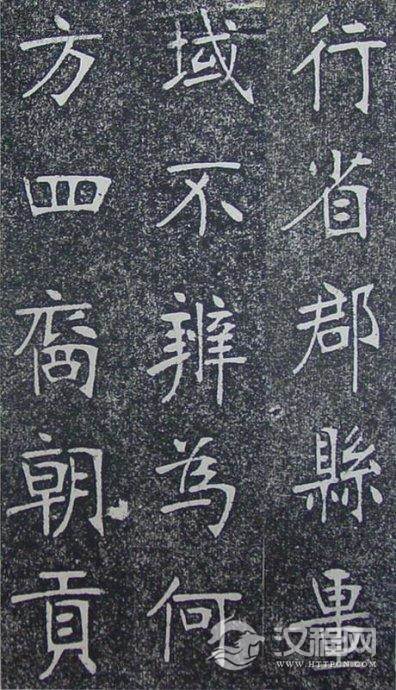 行省郡縣畺
域不辨為何
方四裔朝貢
汉程网
WWW.HTTPCN.COM